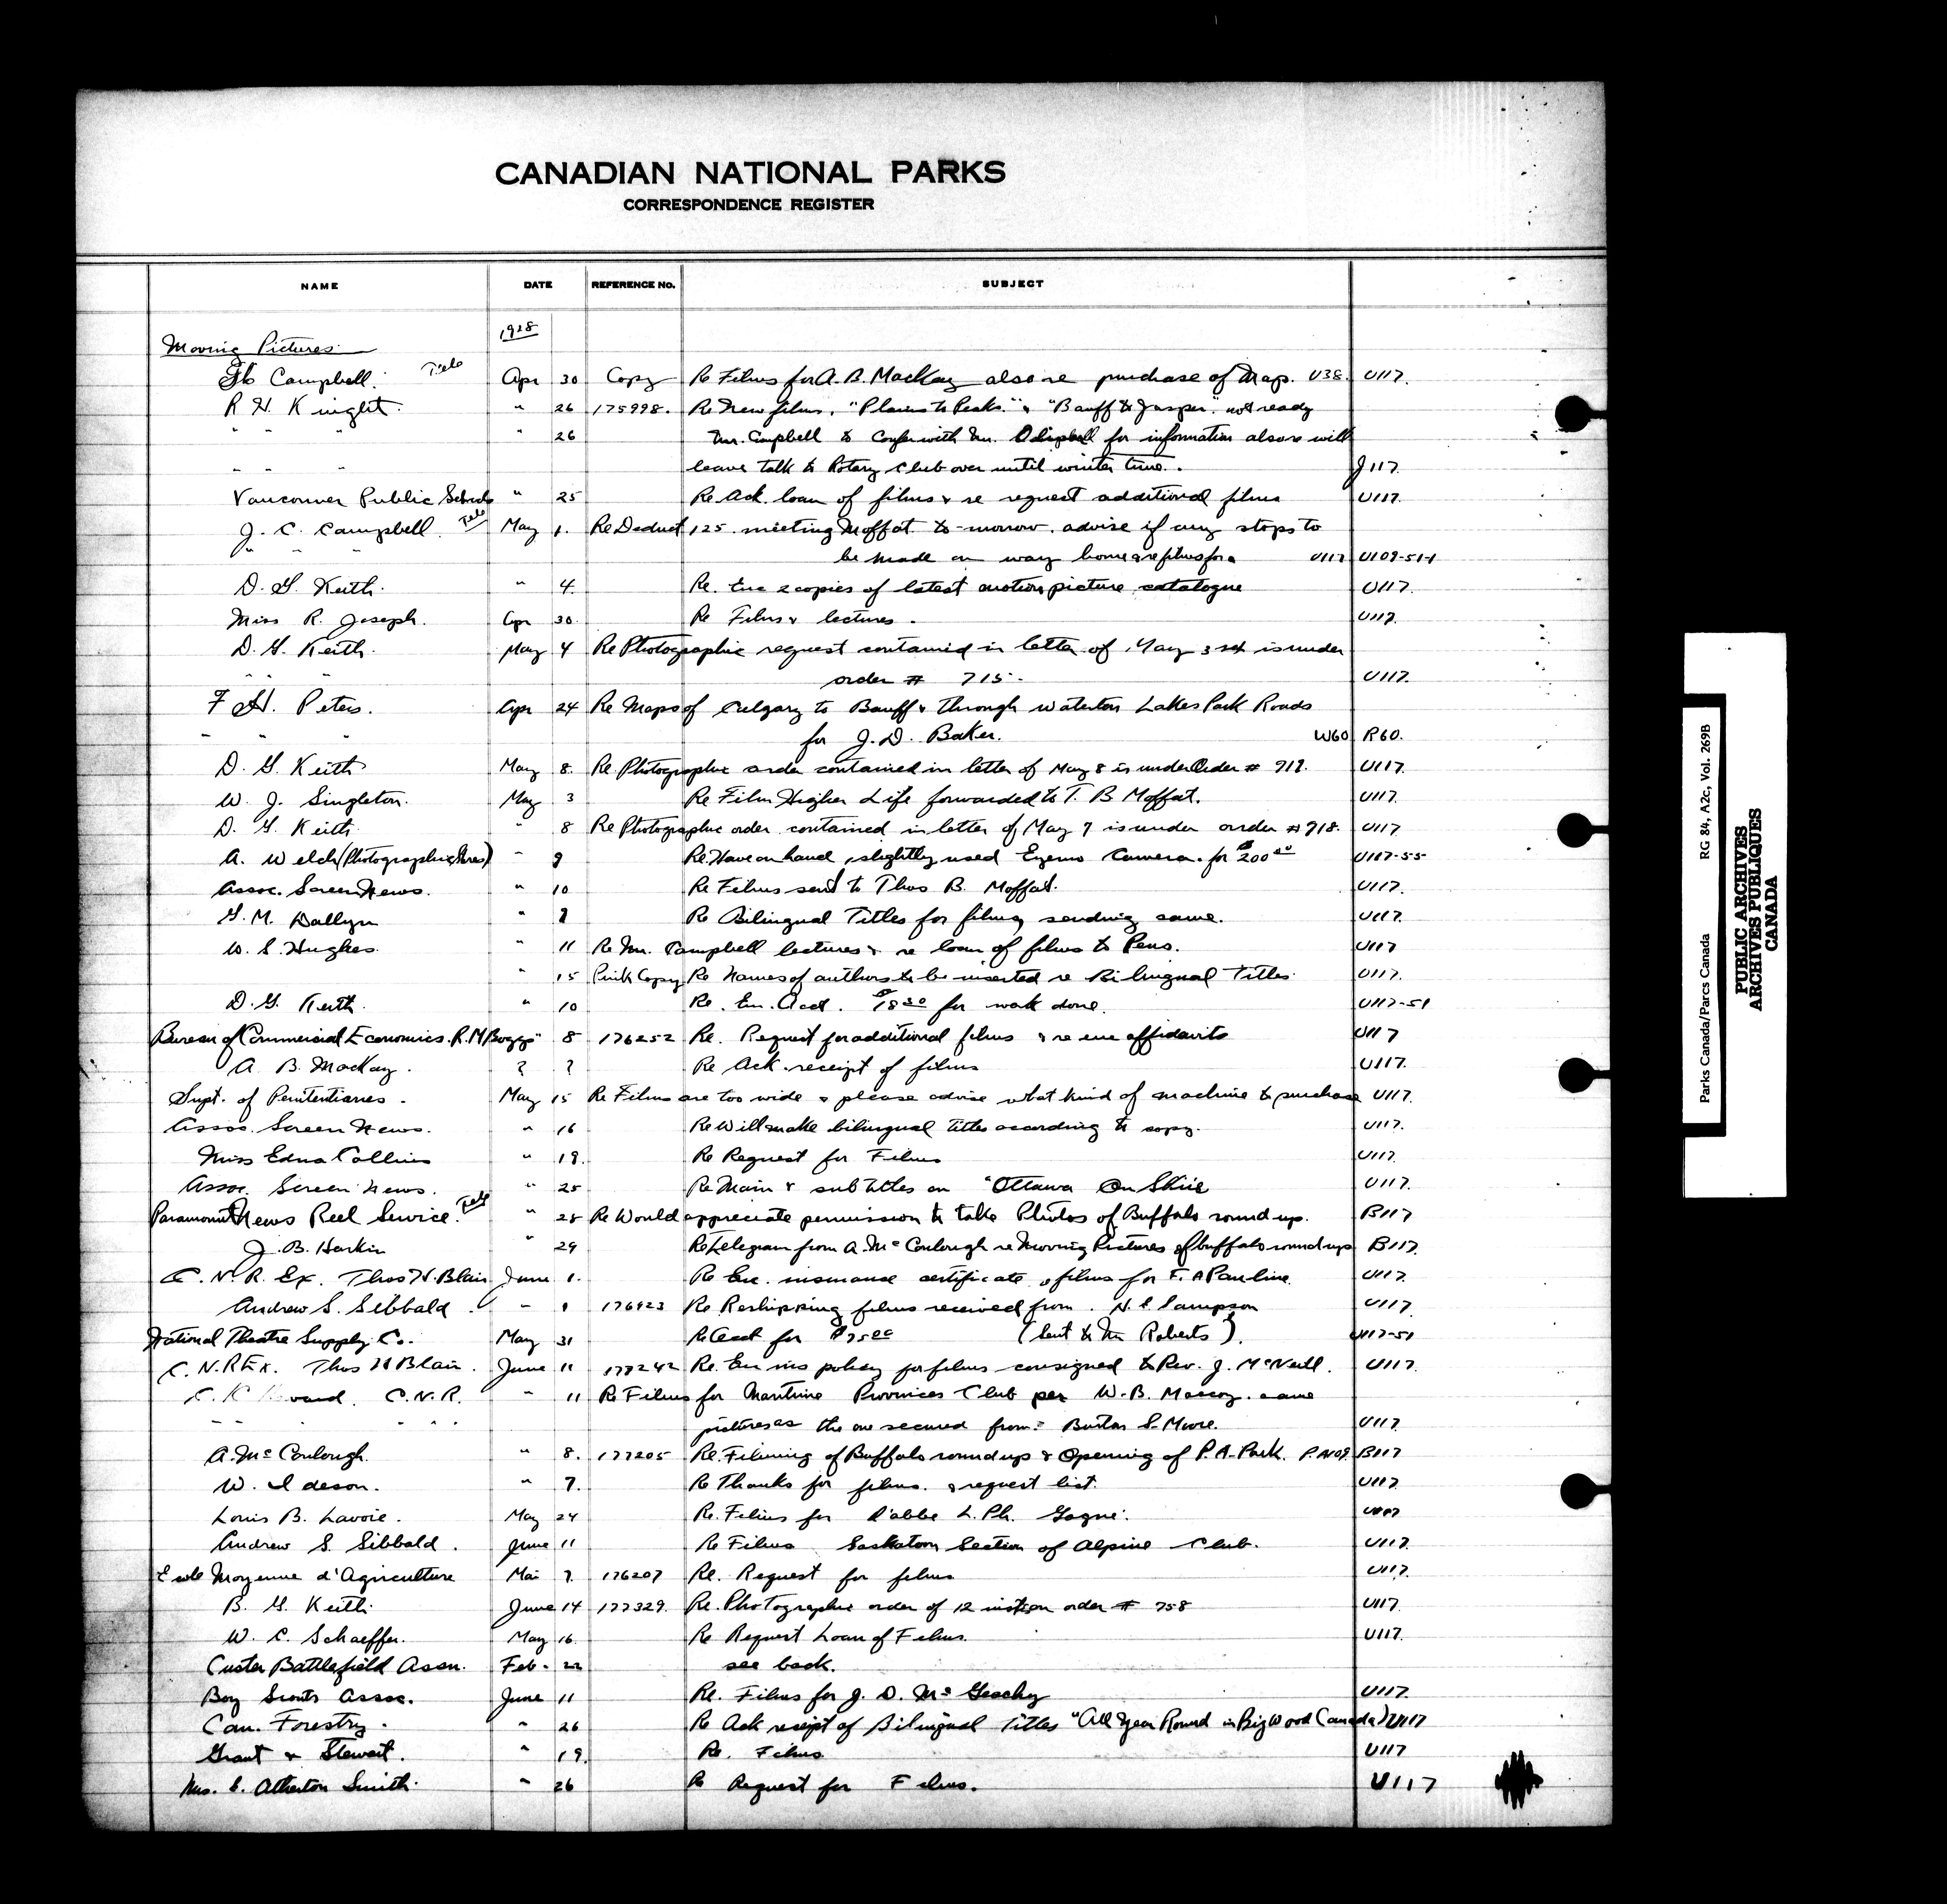 CANADIAN NATIONAL PARKS
CORRESPONDENCE REGISTER
NAME DATE REFERENCE No. SUBJECT
1928
Moving Pictures
Campbell. Tele Apr 30 Copy Re Films for A. B. MacKay also re purchase of Map. U38. U117.
R. H. Knight. " 26 175998. Re New films, "Plains to Peaks." & "Banff to Jasper." not ready
" " " " 26 Mr. Campbell to confer with Mr. for information also re will
" " " leave talk to Rotary Club over until winter time. J117.
Vancouver Public Schools " 25 Re Ack. loan of films & re request additional films U117.
J. C. Campbell. Tele May 1. Re Deduct 125. meeting Moffat to-morrow. advise if any stops to
" " " be made on way home & re films for U117 U109-51-1
D. G. Keith. " 4. Re. Enc 2 copies of latest motion picture catalogue U117.
Miss R. Joseph. Apr 30. Re Films & lectures. U117.
D. G. Keith. May 4 Re Photographic request contained in letter of May 3rd is under
" " order # 715. U117.
F. H. Peters. Apr 24 Re Maps of Calgary to Banff & through Waterton Lakes Park Roads
" " " for J. D. Baker. W60 R60.
D. G. Keith May 8. Re Photographic order contained in letter of May 8 is under Order # 717. U117.
W. J. Singleton. May 3 Re Film Higher Life forwarded to T. B Moffat. U117.
D. G. Keith " 8 Re Photographic order contained in letter of May 7 is under order #718. U117
A. Welch (Photographic Stores) " 9 Re Have on hand, slightly used Eyemo Camera. for $200 00 U117-55
Assoc. Screen News. " 10 Re Films sent to Thos B. Moffat. U117.
G. M. Dallyn " 9 Re Bilingual Titles for films sending same. U117.
W. S. Hughes. " 11 Re Mr. Campbell lectures & re loan of films to Pens. U117
" 15 Pink Copy Re Names of authors to be inserted re Bilingual Titles. U117.
D. G. Keith. " 10 Re. Enc. Acct. for work done. U117-51
Bureau of Commercial Economics. R. M Boggs " 8 176252 Re. Request for additional films & re enc affidavits U117
A. B. MacKay. ? ? Re Ack. receipt of films U117.
Supt. of Penitentiaries. May 15 Re Films are too wide & please advise what kind of machine to purchase U117.
Assoc. Screen News. " 16 Re Will make bilingual titles according to copy. U117.
Miss Edna Collins " 19. Re Request for Films U117.
Assoc. Screen News. " 25 Re Main & sub titles on "Ottawa On Skiis U117.
Paramount News Reel Service. Tele " 28 Re Would appreciate permission to take Photos of Buffalo round up. B117
J. B. Harkin " 29 Re telegram from A. McCoulough re Moving Pictures of buffalo round up B117.
C. N. R. Ex. Thos H. Blair June 1. Re Enc. insurance certificate, films for F. A Pauline. U117.
Andrew S. Sibbald. " 1 176923 Re Reshipping films received from. N. C. Sampson U117.
National Theatre Supply Co. May 31 Re Acct for $75 00 (lent to Mr Roberts). U117-51
C. N. R Ex. Thos H Blair. June 11 177242 Re. Enc ins policy for films consigned to Rev. J. McNeill. U117.
C. N. R. " 11 Re Films for Maritime Provinces Club per W. B. same
" " " " " pictures as the one secured from: Burton S. Moore. U117.
A. McCoulough. " 8. 177205 Re. Filming of Buffalo round up & Opening of P. A. Park. P.A109. B117
W. Ideson. " 7. Re Thanks for films. & request list. U117.
Louis B. Lavoie. May 24 Re. Films for l'abbe L. Ph. Gagne. U117
Andrew S. Sibbald. June 11 Re Films Saskatoon Section of Alpine Club. U117.
Ecole Moyenne d'Agriculture Mai 7. 176207 Re. Request for films U117.
B. G. Keith. June 14 177329. Re. Photographic order of 12 inst on order # 758 U117.
W. C. Schaeffer. May 16. Re Request Loan of Films. U117.
Custer Battlefield Assn. Feb. 22 see back.
Boy Scouts Assoc. June 11 Re. Films for J. D. McGeachy U117.
Can. Forestry. " 26 Re Ack receipt of Bilingual Titles "All Year Round in Big Wood (Canada) U117
Grant & Stewart. " 19. Re. Films U117
Mrs. E. Atherton Smith. " 26 Re Request for Films. U117
Parks Canada/Parcs Canada RG 84, A2c, Vol. 269B
PUBLIC ARCHIVES
ARCHIVES PUBLIQUES
CANADA